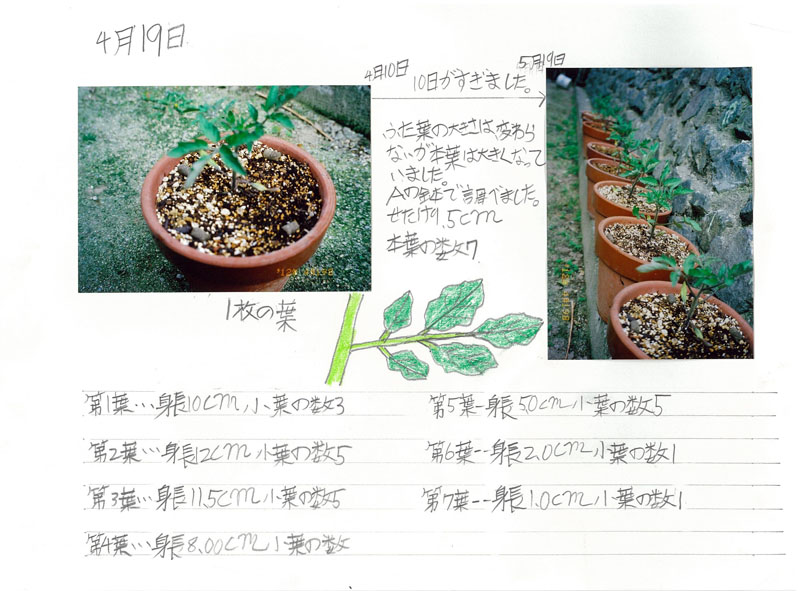 4月19日
4月10日
5月19日
10日がすぎました。
ふた葉の大きさは、変わら
ないが本葉は大きくなって
いました。
Aの鉢で調べました。
せたけ11.5cm
本葉の数7
1枚の葉
第1葉…身長10cm小葉の数3
第2葉…身長12cm小葉の数5
第3葉…身長11.5cm小葉の数5
第4葉…身長8.00cm小葉の数
第5葉--身長5.0cm小葉の数5
第6葉--身長2.0cm小葉の数1
第7葉--身長1.0cm小葉の数1